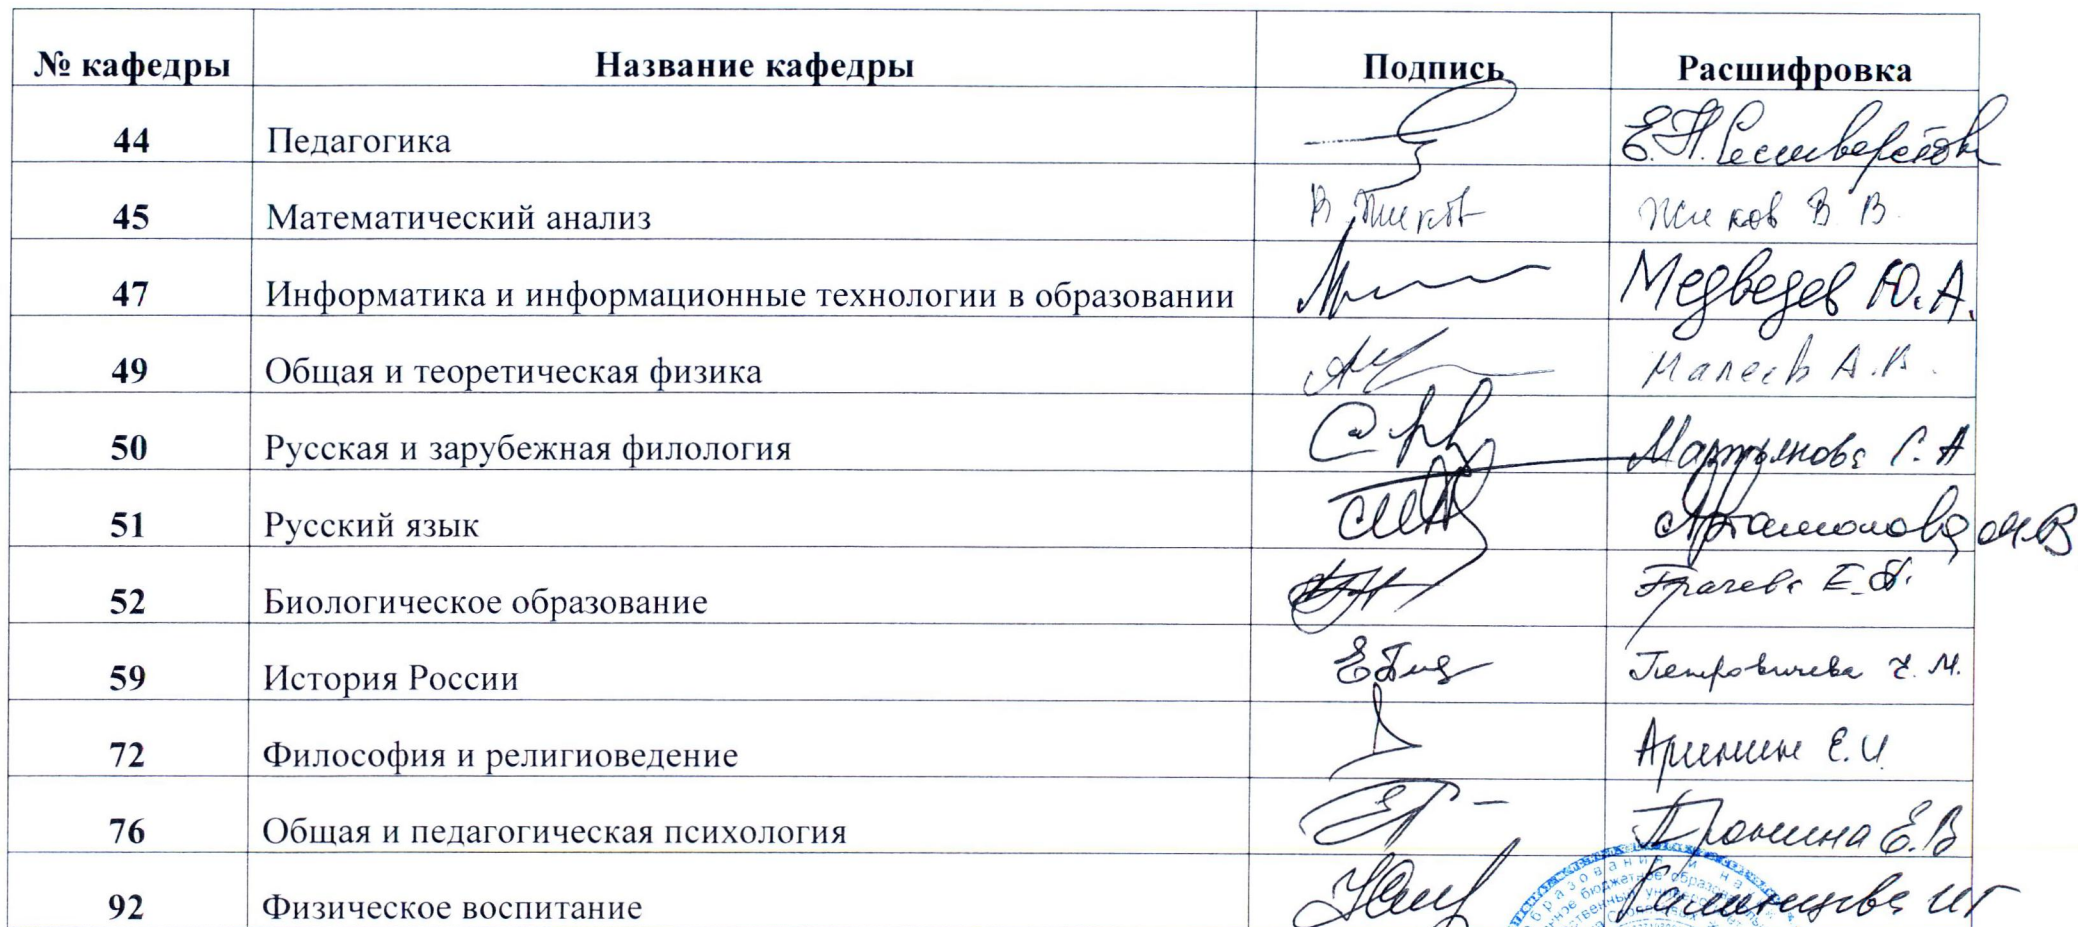 № кафедры Название кафедры Подпись Расшифровка
44 Педагогика Е.Н. Селиверстова
45 Математический анализ В. Жиков Жиков В. В.
47 Информатика и информационные технологии в образовании Медведев Ю.А.
49 Общая и теоретическая физика Малеев А.В.
50 Русская и зарубежная филология Мартьянова С.А
51 Русский язык Артамонова МВ
52 Биологическое образование Грачева Е.П.
59 История России Петровичева Е.М.
72 Философия и религиоведение Аринин Е.И.
76 Общая и педагогическая психология Пронина Е.В
92 Физическое воспитание